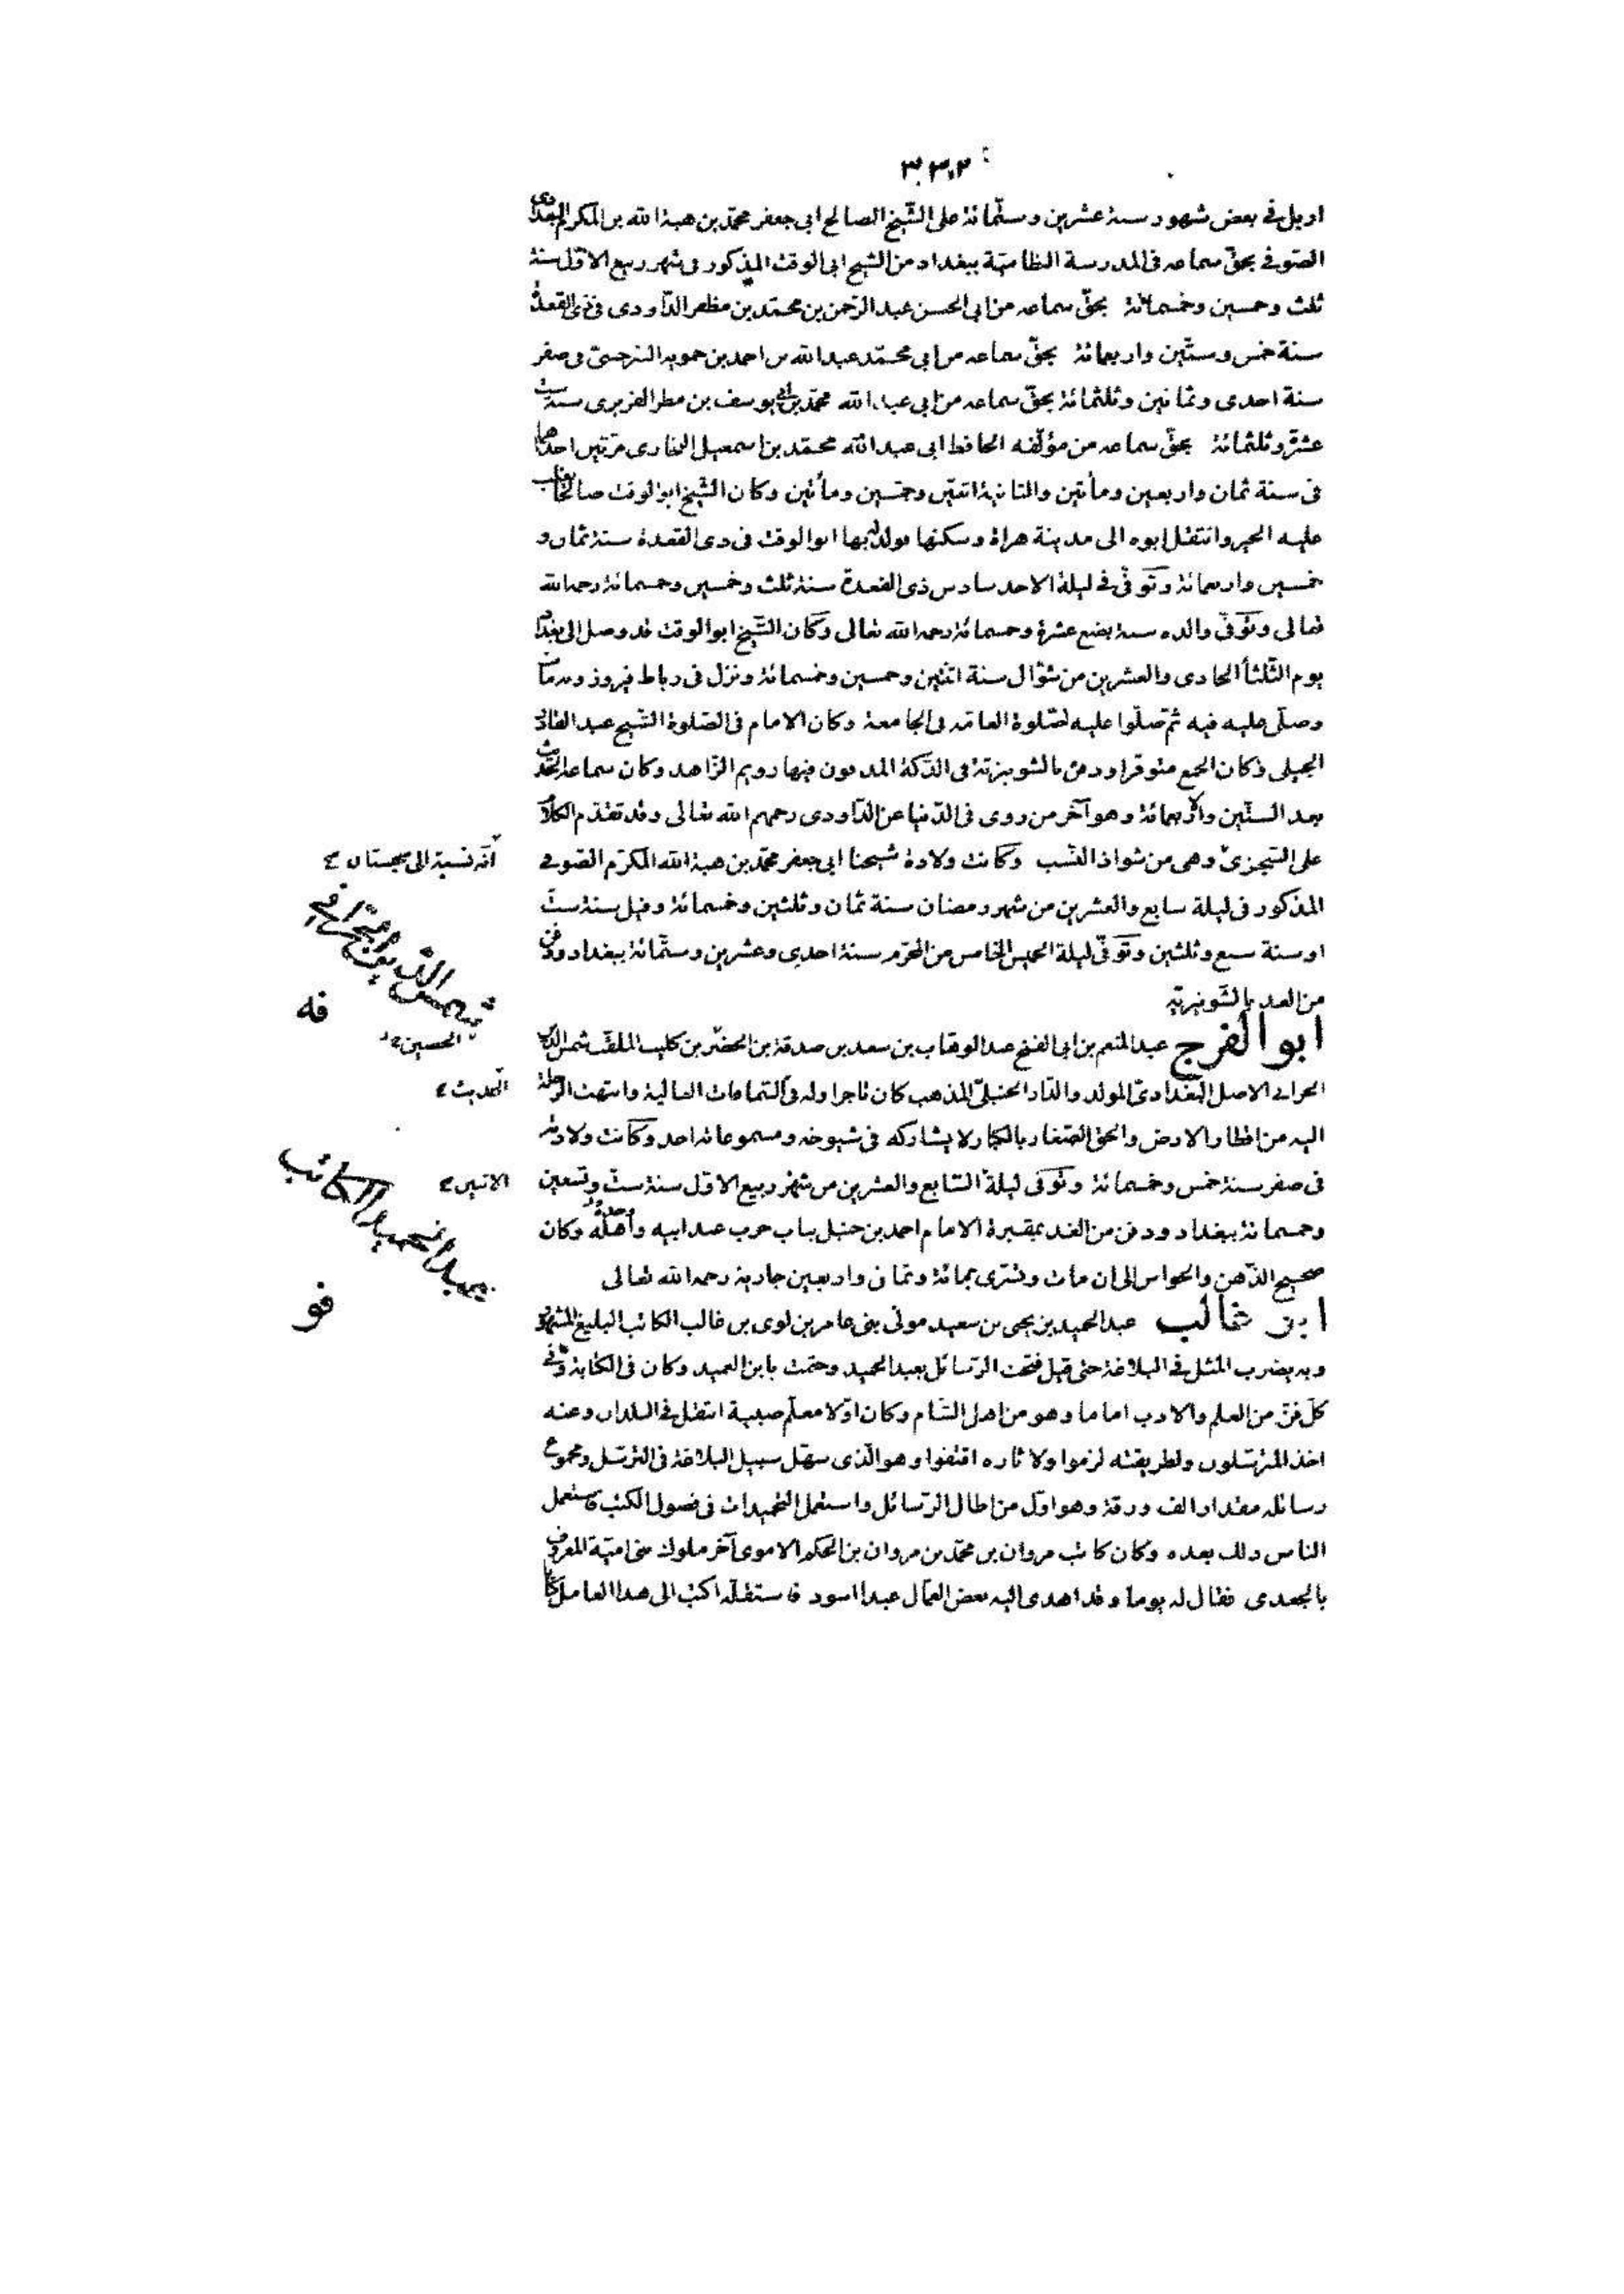 ٣٣٢
اربل فى بعض شهور سنة عشرين وستّمائة على الشّيخ الصالح ابى جعفر محمّد بن هبة الله بن المكرم البغدادى
الصّوفى بحقّ سماعه فى المدرسة النظاميّة ببغداد من الشيخ ابى الوقت المذكور فى شهر ربيع الاوّل سنة
ثلث وخمسين وخمسمائة بحقّ سماعه من ابى الحسن عبد الرّحمن بن محمّد بن مظفر الدّاودى فى ذى القعدة
سنة خمس وستّين واربعمائة بحقّ سماعه من ابى محمّد عبد الله بن احمد بن حمويه السّرخسىّ فى صفر
سنة احدى وثمانين وثلثمائة بحقّ سماعه من ابى عبد الله محمّد بن ابى يوسف بن مطر الفربرى سنة ستّ
عشرة وثلثمائة بحقّ سماعه من مؤلّفه الحافظ ابى عبد الله محمّد بن اسمعيل البخارى مرّتين احداهما
فى سنة ثمان واربعين ومأتين والثانية اثنتين وخمسين ومأتين وكان الشّيخ ابو الوقت صالحا يغلب
عليه الخير وانتقل ابوه الى مدينة هراة وسكنها فولد له بها ابو الوقت فى ذى القعدة سنة ثمان و
خمسين واربعمائة وتوفّى فى ليلة الاحد سادس ذى القعدة سنة ثلث وخمسين وخمسمائة رحمه الله
تعالى وتوفّى والده سنة بضع عشرة وخمسمائة رحمه الله تعالى وكان الشّيخ ابو الوقت قد وصل الى بغداد
يوم الثّلثأ الحادى والعشرين من شوّال سنة اثنتين وخمسين وخمسمائة ونزل فى رباط فيروز وبه مات
وصلّى عليه فيه ثمّ صلّوا عليه الصّلوة العامّه فى الجامعة وكان الامام فى الصّلوة الشّيخ عبد القادر
الجيلى وكان الجمع متوفرا ودفن بالشونيزيّة فى الدّكة المدفون فيها رويم الزّاهد وكان سماعه الحديث
بعد السّتّين والأربعمائة وهو آخر من روى فى الدّنيا عن الدّاودى رحمهم الله تعالى وقد تقدّم الكلام
على السّجزىّ وهى من شواذ النّسب وكانت ولادة شيخنا ابى جعفر محمّد بن هبة الله المكرّم الصّوفى
انّه نسبة الى سجستان
المذكور فى ليلة سابع والعشرين من شهر رمضان سنة ثمان وثلثين وخمسمائة وقيل سنة ستّ
او سنة سبع وثلثين وتوفّى ليلة الخميس الخامس من المحرّم سنة احدى وعشرين وستّمائة ببغداد ودفن
من الغد بالشّونيزيّة
فه
ابو الفرج عبد المنعم بن ابى الفتح عبد الوهّاب بن سعد بن صدقة بن الخضر بن كليب الملقّب شمس الدّين
الحرانى الاصل البغدادىّ المولد والدّار الحنبلىّ المذهب كان تاجرا وله فى السّماعات العالية وانتهت الرحلة
اليه من اقطار الارض والحق الصّغار بالكبار لا يشاركه فى شيوخه ومسموعاته احد وكانت ولادته
فى صفر سنة خمس وخمسمائة وتوفّى ليلة السّابع والعشرين من شهر ربيع الاوّل سنة ستّ وتسعين
الاثنين
وخمسمائة ببغداد ودفن من الغد بمقبرة الامام احمد بن حنبل بباب حرب عند ابيه وأهله وكان
صحيح الذّهن والحواس الى ان مات وتسرّى بمائة وثمان واربعين جارية رحمه الله تعالى
عبد الحميد الكاتب
فو
ابن غالب عبد الحميد بن يحيى بن سعيد مولى بنى عامر بن لوى بن غالب الكاتب البليغ المشهور
وبه يضرب المثل فى البلاغة حتى قيل فتحت الرّسائل بعبد الحميد وختمت بابن العميد وكان فى الكتابة وفى
كلّ فنّ من العلم والادب اماما وهو من اهل الشّام وكان اوّلا معلّم صبية انتقل فى البلدان وعنه
اخذ المترسّلون ولطريقته لزموا ولاثاره اقتفوا وهو الّذى سهّل سبيل البلاغة فى الترسّل ومجموع
رسائله مقدار الف ورقة وهو اوّل من اطال الرّسائل واستعمل التحميدات فى فصول الكتب فاستعمل
الناس ذلك بعده وكان كاتب مروان بن محمّد بن مروان بن الحكم الاموى آخر ملوك بنى اميّة المعروف
بالجعدى فقال له يوما وقد اهدى اليه بعض العمّال عبدا اسود فاستقلّه اكتب الى هذا العامل كتابا